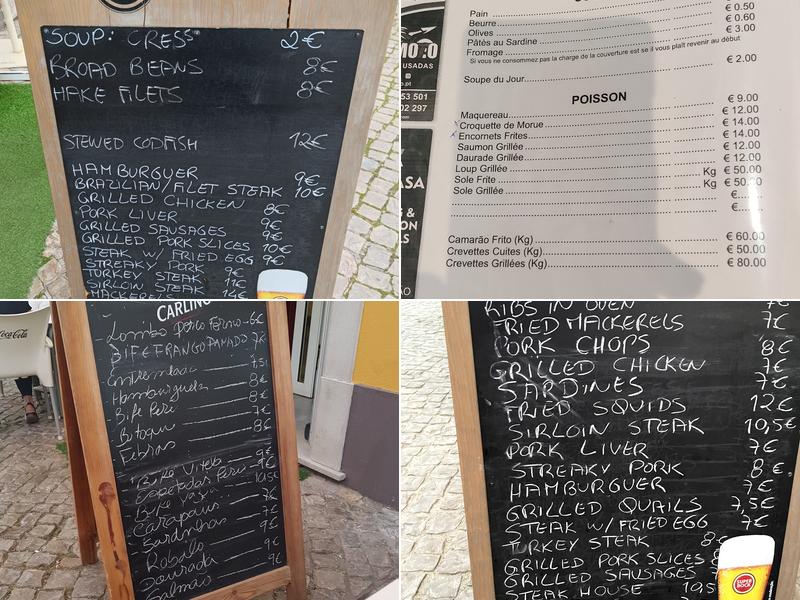 SOUP: CRESS 2€
BROAD BEANS 8€
HAKE FILETS 8€
STEWED CODFISH 12€
HAMBURGUER 9€
BRAZILIAN/FILET STEAK 10€
GRILLED CHICKEN 8€
PORK LIVER 9€
GRILLED SAUSAGES 9€
GRILLED PORK SLICES 10€
STEAK W/ FRIED EGG 9€
STREAKY PORK 9€
TURKEY STEAK 11€
SIRLOIN STEAK 14€
MACKERELS
Pain € 0.50
Beurre € 0.60
Olives € 3.00
Pâtès au Sardine
Fromage
Si vous ne consommez pas la charge de la couverture est se il vous plaît revenir au début
€ 2.00
Soupe du Jour
POISSON
Maquereau € 9.00
Croquette de Morue € 12.00
Encornets Frites € 14.00
Saumon Grillée € 14.00
Daurade Grillée € 12.00
Loup Grillée € 12.00
Sole Frite Kg € 50.00
Sole Grillée Kg € 50.
€
€
Camarão Frito (Kg) € 60.00
Crevettes Cuites (Kg) € 50.00
Crevettes Grillées (Kg) € 80.00
53 501
02 297
CARLING
Coca-Cola
Lombo Porco Forno 6€
BIFE FRANGO PANADO 7€
Entremeada 7,5€
Hamburguesa 8€
Bife Peru 8€
Bitoque 7€
Febras 8€
Bife Vitela 9€
Espetadas Peru 9€
Bife Vazia 10,5€
Carapaus 7€
Sardinhas 7€
Robalo 9€
Dourada 9€
Salmão 9€
RIBS IN OVEN 7€
FRIED MACKERELS 7€
PORK CHOPS 8€
GRILLED CHICKEN 7€
SARDINES 7€
FRIED SQUIDS 12€
SIRLOIN STEAK 10,5€
PORK LIVER 7€
STREAKY PORK 8€
HAMBURGUER 7€
GRILLED QUAILS 7,5€
STEAK W/ FRIED EGG 7€
TURKEY STEAK 8€
GRILLED PORK SLICES 8
GRILLED SAUSAGES 7
STEAK HOUSE 10,5
SUPER BOCK